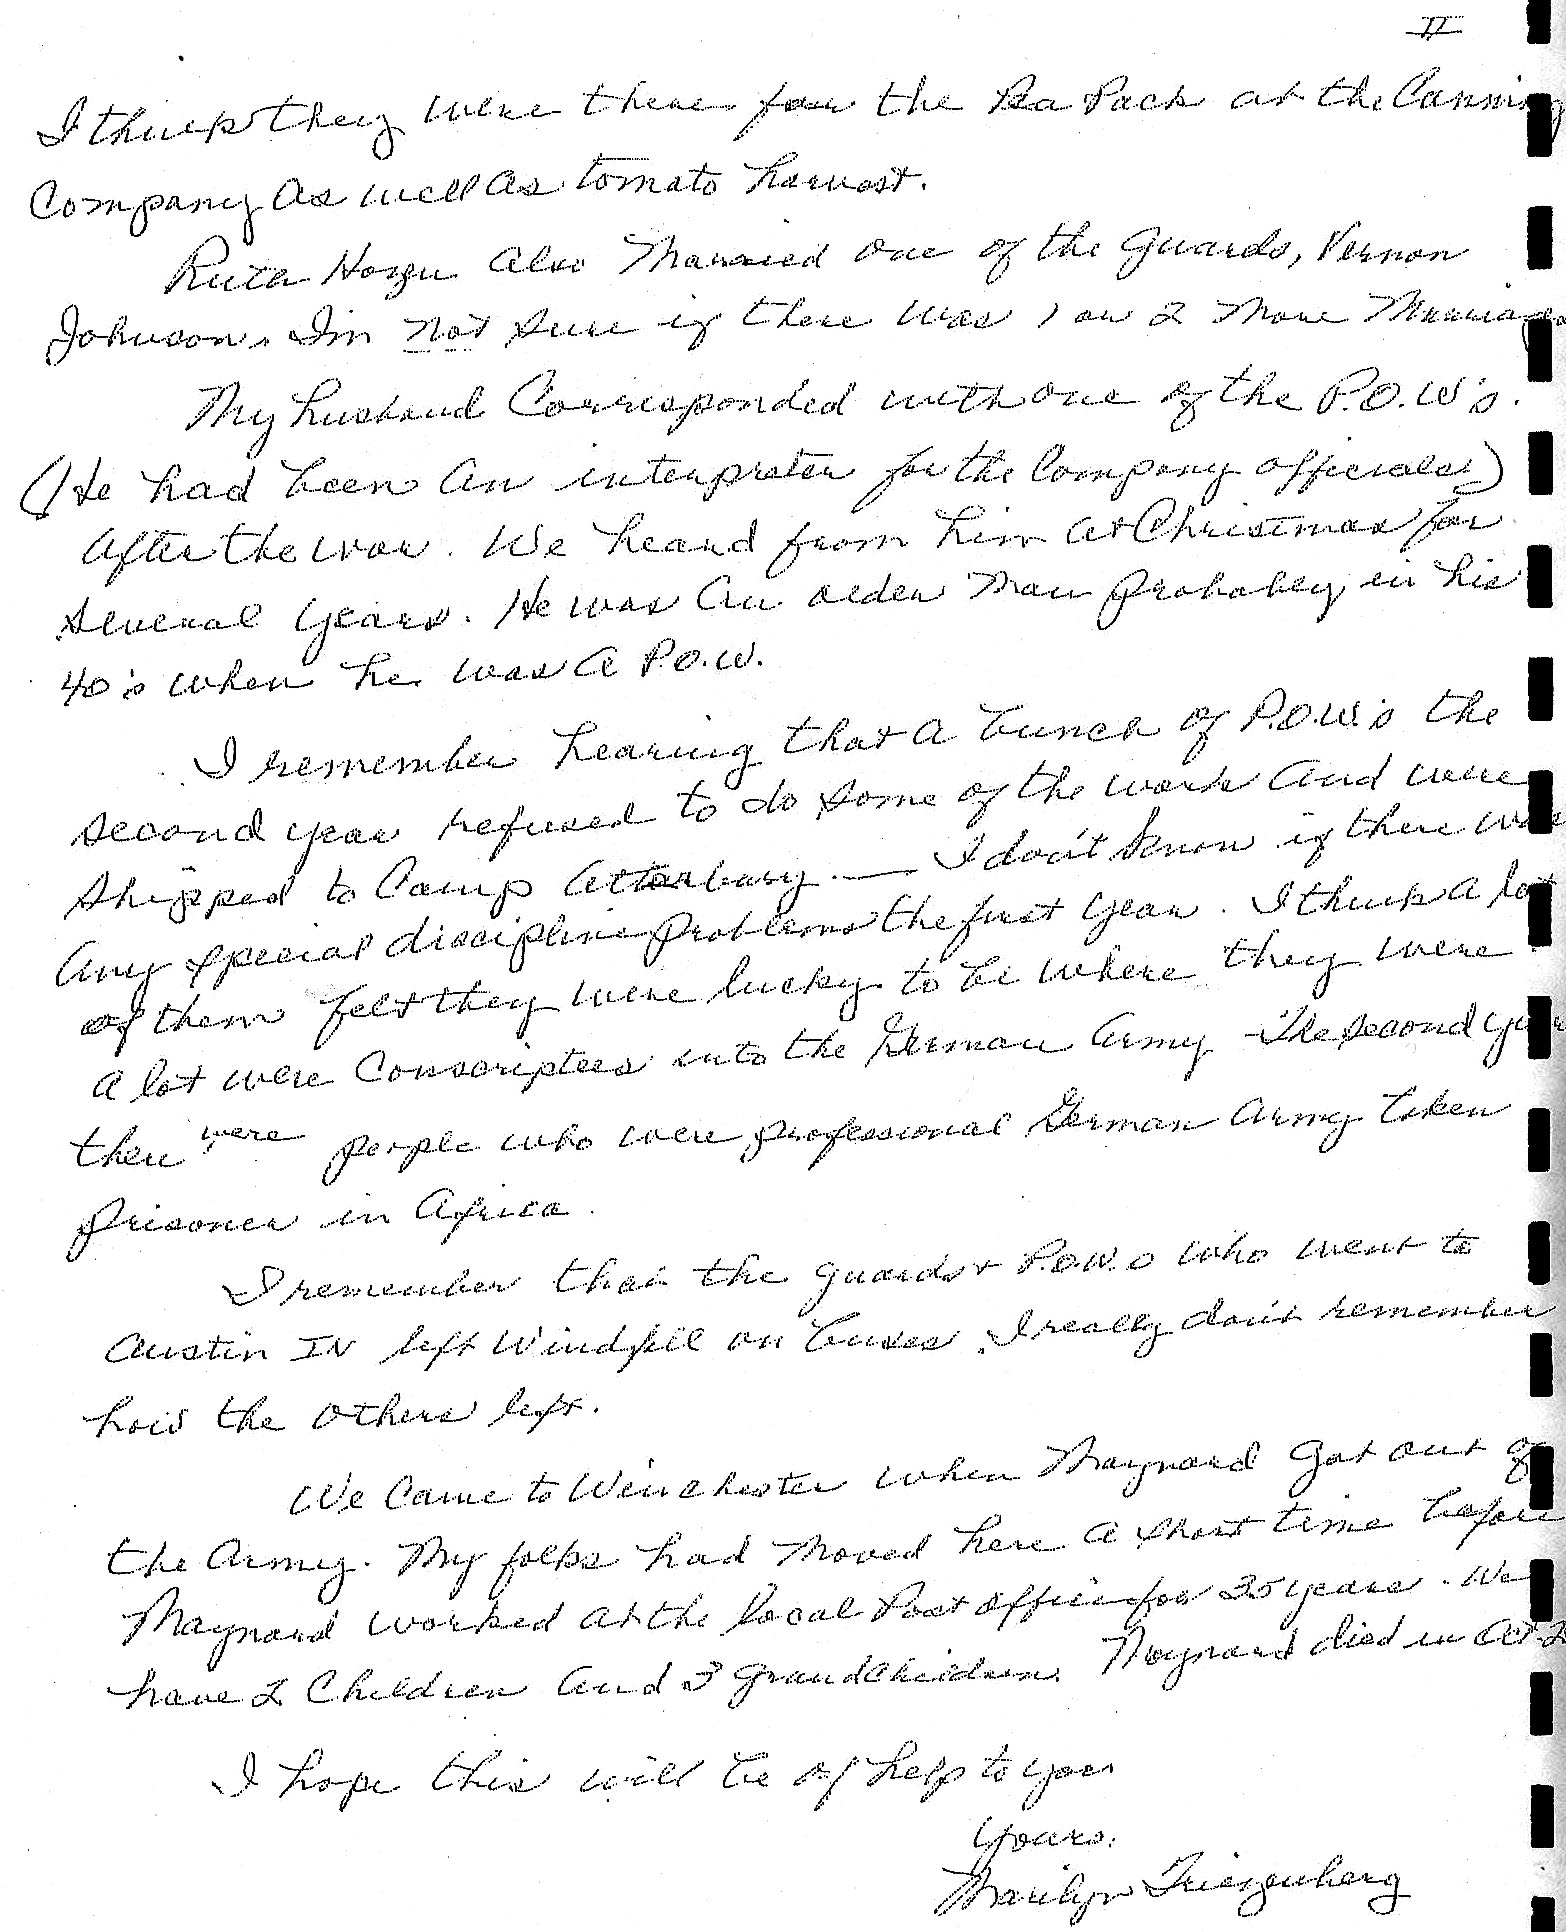 II
I think they were there for the Pea Pack at the Canning
Company as well as tomato harvest.
Ruth also Married one of the guards, Vernon
Johnson. I'm not sure if there was 1 or 2 more Marriages
My husband Corresponded with one of the P.O.W's.
(He had been an interpreter for the Company officials)
after the war. We heard from him at Christmas for
several years. He was an older man probably in his
40's when he was a P.O.W.
I remember hearing that a bunch of P.O.W.'s the
second year refused to do some of the work and were
shipped to Camp Atterbury. — I don't know if there was
any special discipline problems the first year. I think a lot
of them felt they were lucky to be where they were
a lot were Conscriptees into the German Army - The second year
there were people who were professional German Army taken
prisoner in Africa.
I remember that the guards & P.O.W.s who went to
Austin IN left Windfall on buses. I really don't remember
how the others left.
We came to Winchester when Maynard got out of
the Army. My folks had moved here a short time before
Maynard worked at the local Post office for 35 years. We
have 2 Children and 3 grandchildren. Maynard died in Oct.
I hope this will be of help to you
Yours,
Marilyn